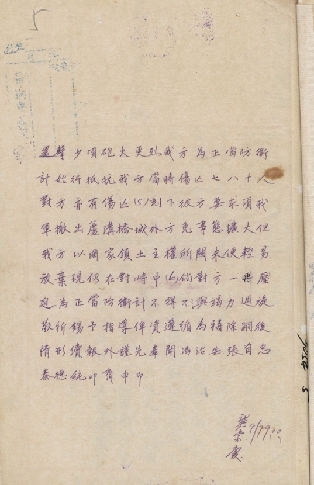 5
少頃砲火更烈我方為正當防衛
計始行抵抗我方當時傷亡七八十人
對方亦有傷亡(15)刻下彼方要求須我
軍撤出蘆溝橋城外方免事態擴大但
我方以國家領土主權所關未便輕易
放棄現仍在對峙中倘對方一再壓
迫為正當防衛計不得不與竭力週旋
敬祈賜予指導俾資遵循為禱除嗣後
情形續報外謹先奉聞馮治安張自忠
秦德純叩齊申印